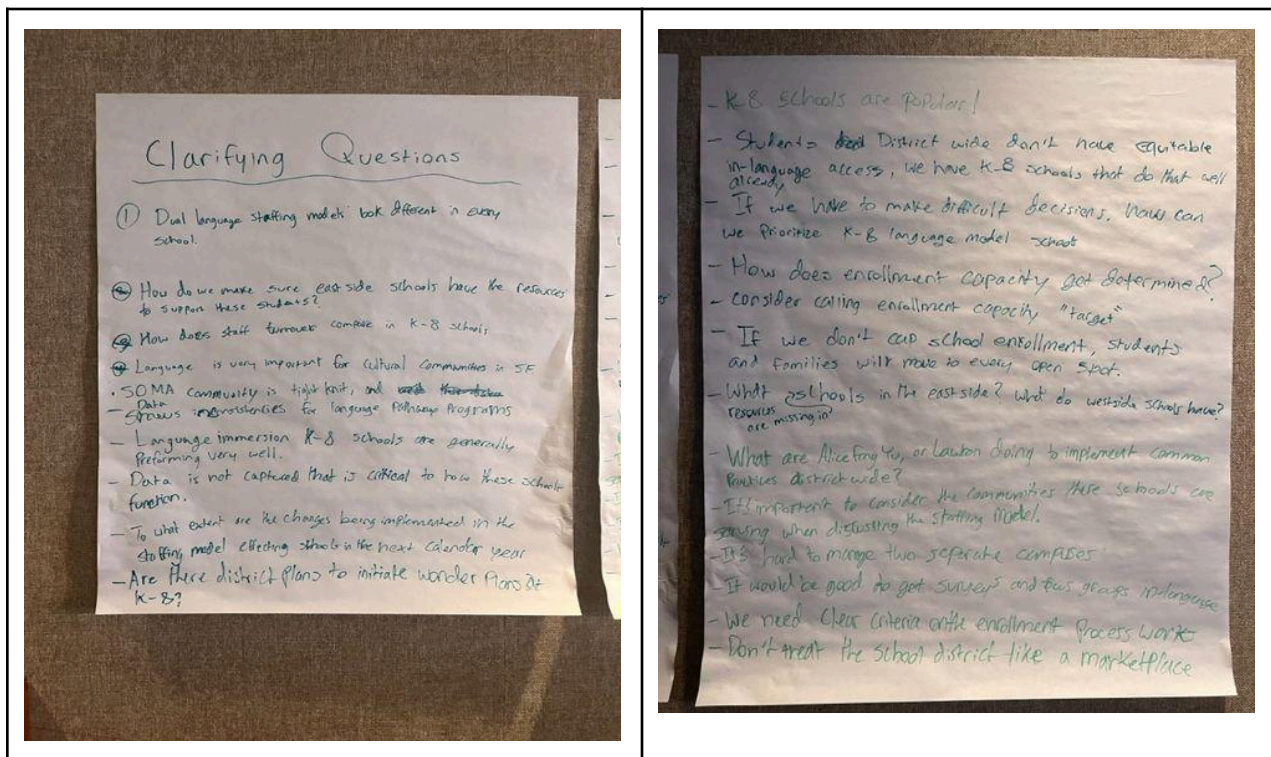 Clarifying Questions
① Dual language staffing models look different in every
school.
How do we make sure east side schools have the resources
to support these students?
How does staff turnover compare in K-8 schools
Language is very important for cultural communities in SF
· SOMA community is tight knit, and
- Data
shows inconsistencies for language Pathway Programs
- Language immersion K-8 schools are generally
Preforming very well.
- Data is not captured that is critical to how these schools
function.
- To what extent are the changes being implemented in the
staffing model effecting schools in the next calendar year
- Are there district plans to initiate wonder Plans at
K-8?
- K-8 schools are popular!
- Students District wide don't have equitable
in-language access, we have K-8 schools that do that well
already
- If we have to make difficult decisions, how can
we Prioritize K-8 language model school
- How does enrollment capacity get determined?
- Consider calling enrollment capacity "target"
- If we don't cap school enrollment, students
and families will move to every open spot.
- What schools in the east side? What do westside schools have?
resources
are missing in?
- What are Alice Fong Yu, or Lawton doing to implement common
Practices district wide?
- It's important to consider the communities these schools are
serving when discussing the staffing model.
- It's hard to manage two seperate campuses
- It would be good to get surveys and focus groups in-language
- We need Clear Criteria on the enrollment Process works
- Don't treat the school district like a marketplace